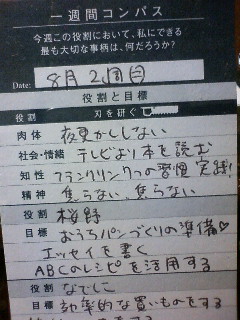 一週間コンパス
今週この役割において、私にできる
最も大切な事柄は、何だろうか?
Date: 8月2週目
役割と目標
役割 刃を研ぐ
肉体 夜更かししない
社会・情緒 テレビより本を読む
知性 フランクリン7つの習慣 実践!
精神 焦らない、焦らない
役割
目標 おうちパンづくりの準備♡
エッセイを書く
ABCのレシピを活用する
役割 なでしこ
目標 効率的な買いものをする